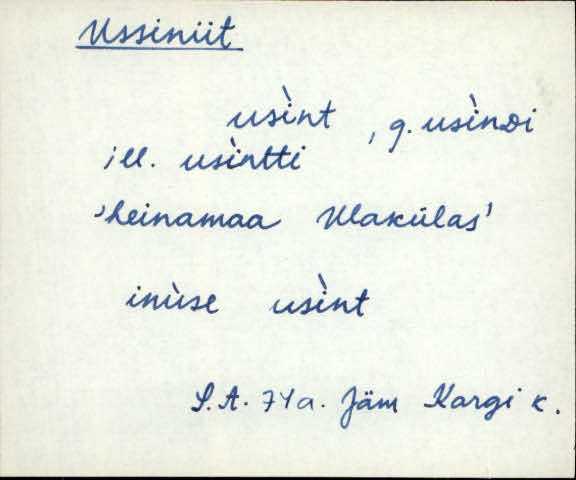 Ussiniit
usìnt, g. usìnDi
ill. usìntti
'heinamaa Ülakülas'
inùse usìnt
S.A. 74a. Jäm Kargi k.